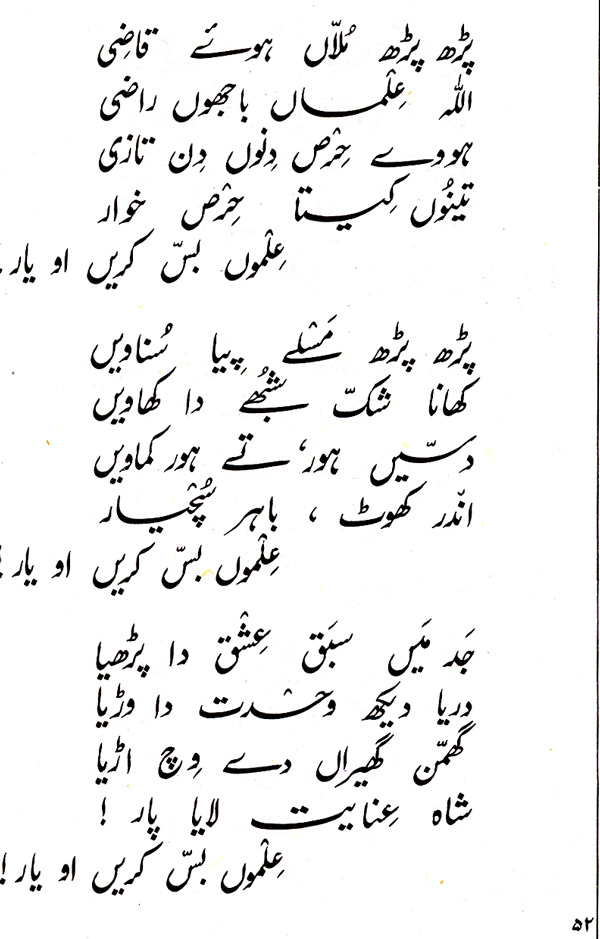 پڑھ پڑھ مُلّاں ہوئے قاضِی
اللّٰہ عِلْمَاں باجھوں راضی
ہووے حِرْص دِنوں دِن تازی
تینُوں کِیتا حِرْص خوار
عِلْموں بسّ کریں او یار!
پڑھ پڑھ مَسْئلے پِیا سُناویں
کھانا شکّ شُبھے دا کھاویں
دسّیں ہور، تے ہور کماویں
انّدر کھوٹ ، باہر سُچْیار
عِلْموں بسّ کریں او یار!
جَد مَیں سبَق عِشْق دا پڑھیا
دریا دیکھ وحْدت دا وڑیا
گھمّن گھیراں دے وِچ اڑیا
شاہ عِنایت لایا پار !
عِلْموں بسّ کریں او یار!
۵۲